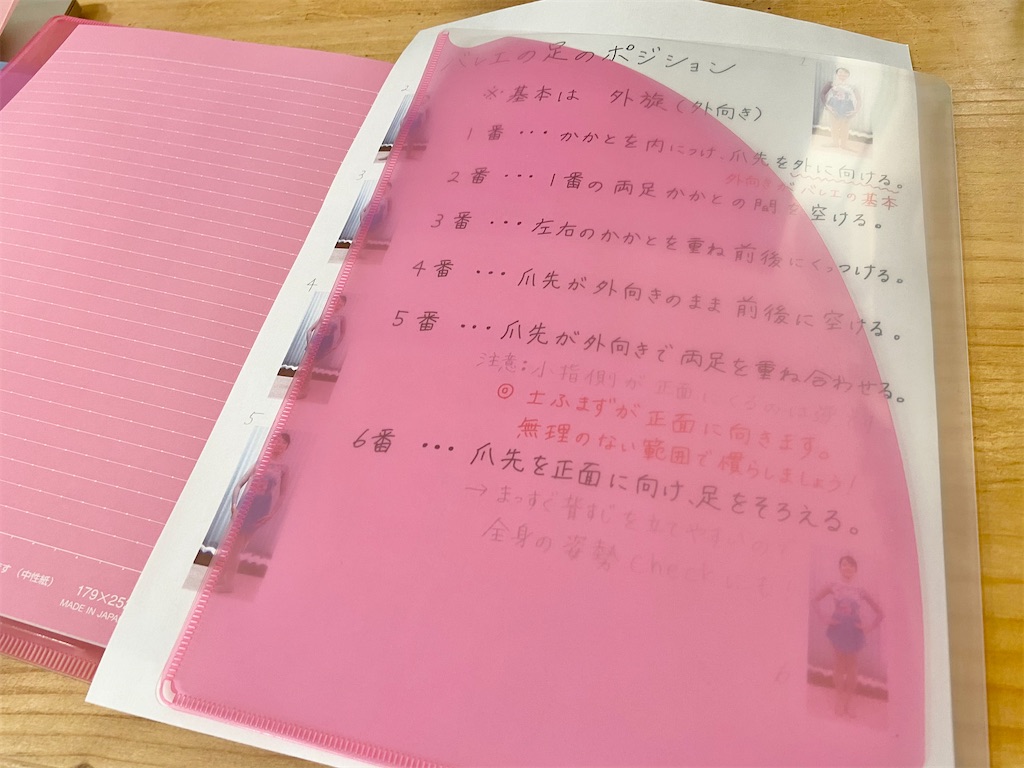 バレエの足のポジション
※基本は 外旋(外向き)
1番・・・かかとを内につけ、爪先を外に向ける。
外向きがバレエの基本
2番・・・1番の両足かかとの間を空ける。
3番・・・左右のかかとを重ね前後にくっつける。
4番・・・爪先が外向きのまま前後に空ける。
5番・・・爪先が外向きで両足を重ね合わせる。
注意:小指側が正面にくるのは
◎土ふまずが正面に向きます。
無理のない範囲で慣らしましょう!
6番・・・爪先を正面に向け、足をそろえる。
→まっすぐ背すじを立てやすいので
全身の姿勢checkにも!
2
3
4
5
6
す(中性紙)
179×25
MADE IN JAPA